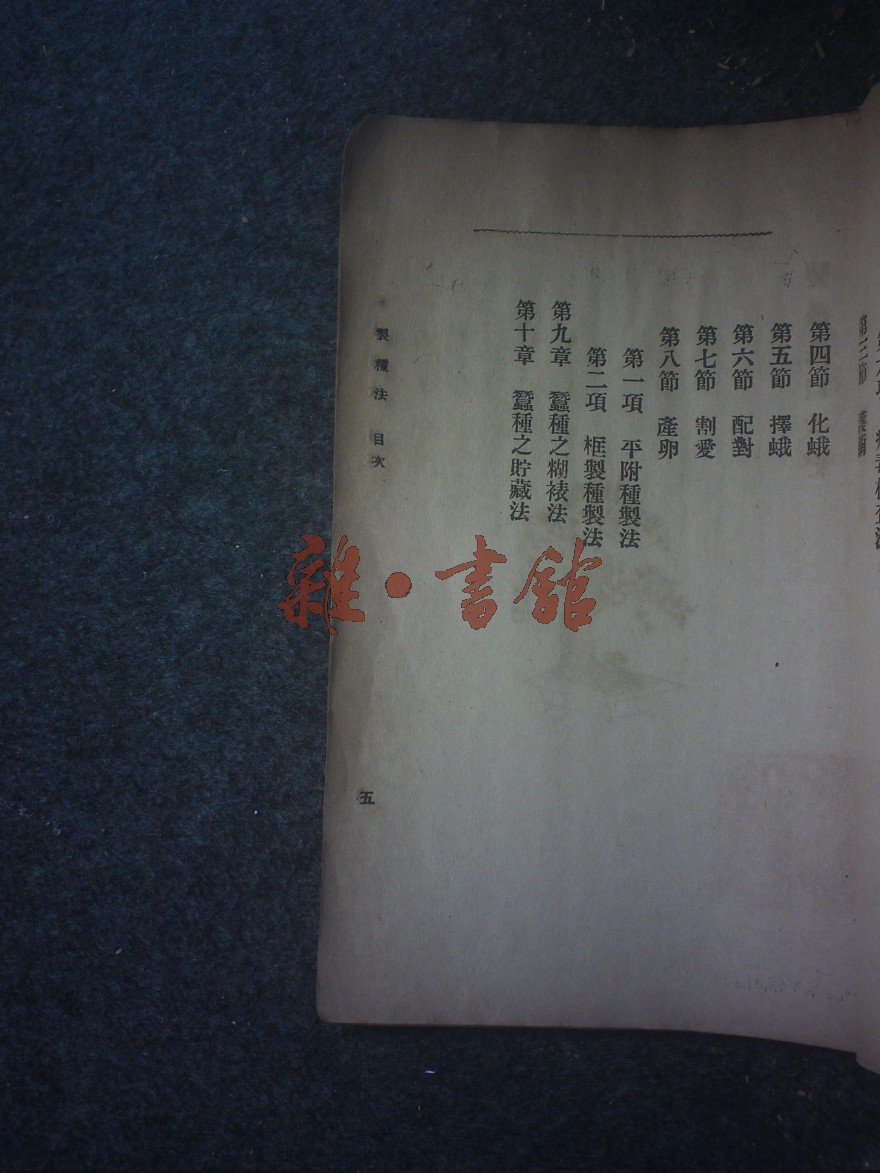 第三節
第四節 化蛾
第五節 擇蛾
第六節 配對
第七節 割愛
第八節 產卵
第一項 平附種製法
第二項 框製種製法
第九章 蠶種之糊裱法
第十章 蠶種之貯藏法
製種法 目次
五
雜·書館